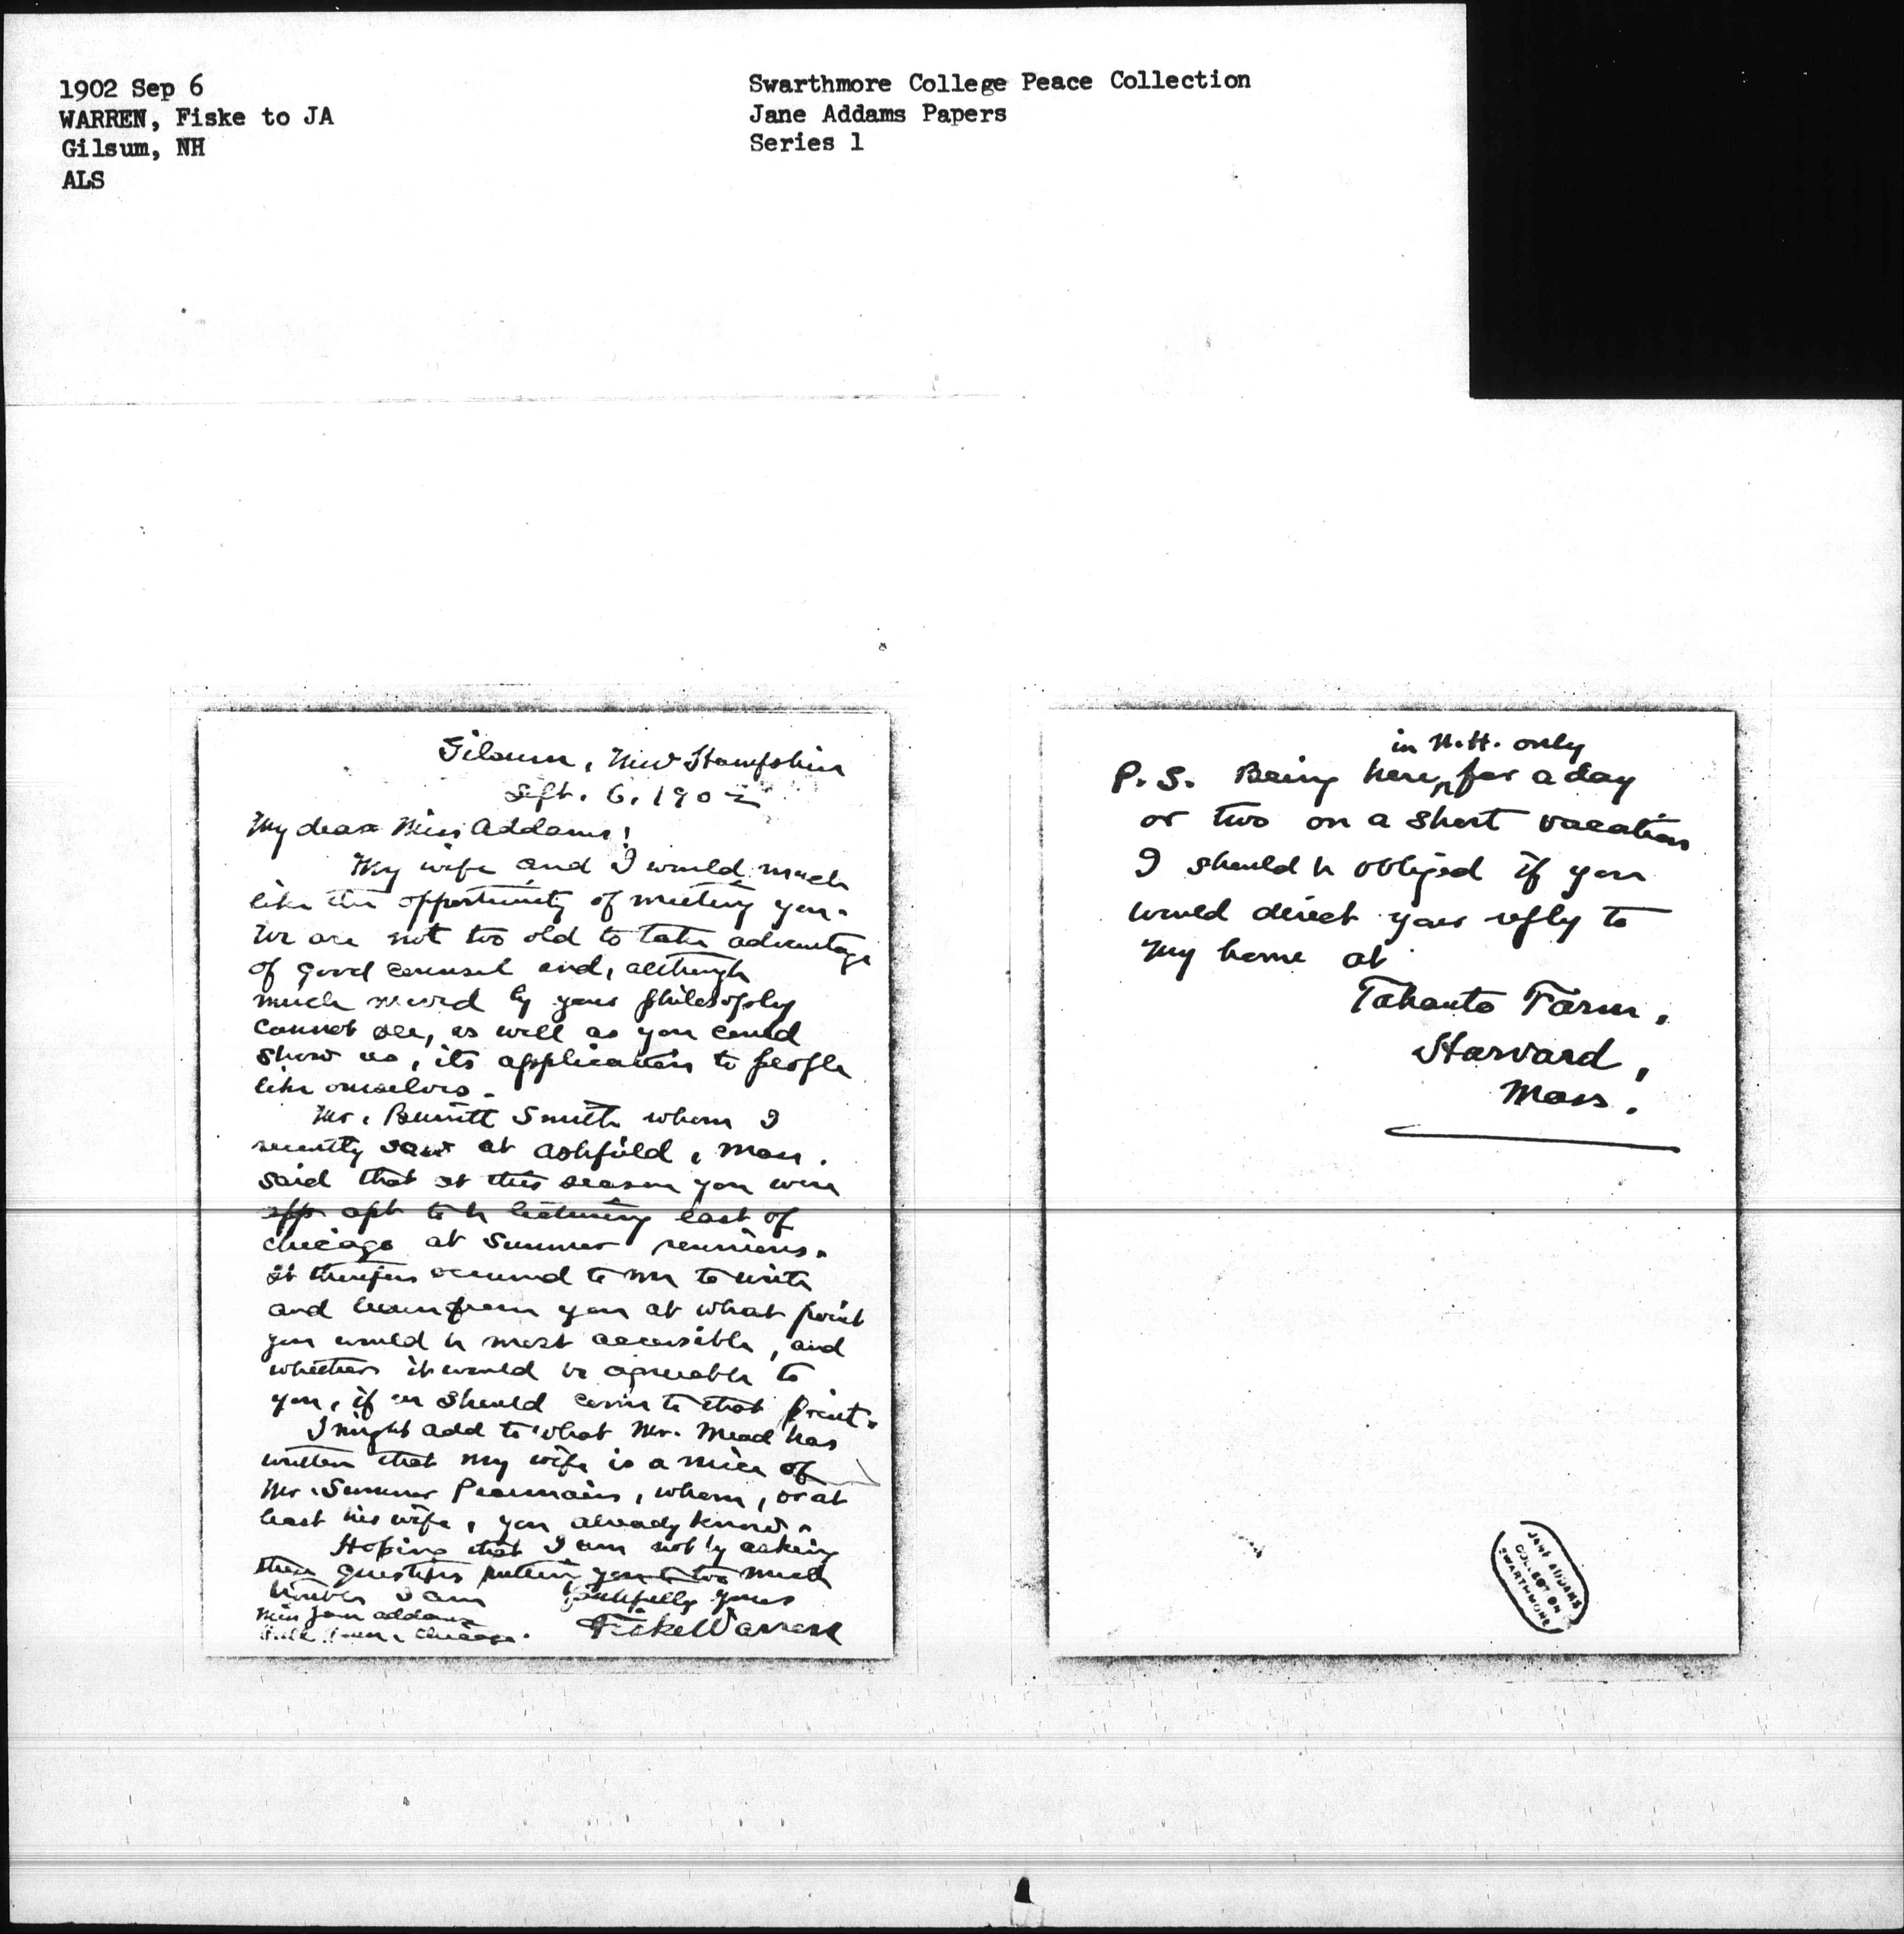 1902 Sep 6
WARREN, Fiske to JA
Gilsum, NH
ALS
Swarthmore College Peace Collection
Jane Addams Papers
Series 1
Gilsum, New Hampshire
Sept. 6. 1902
My dear Miss Addams!
My wife and I would much
like the opportunity of meeting you.
We are not too old to take advantage
of good counsel and, although
much moved by your philosophy
cannot see, as well as you could
show us, its application to people
like ourselves.
Mr. Burritt Smith whom I
recently saw at Ashfield, Mass.
said that at this season you were
app apt to be lecturing east of
Chicago at Summer reunions.
It therefore occurred to me to write
and learn from you at what point
you would be most accessible, and
whether it would be agreeable to
you, if we should come to that point.
I might add to what Mr. Mead has
written that my wife is a niece of
Mr. Sumner Pearmain, whom, or at
least his wife, you already know.
Hoping that I am not by asking
these questions putting you to too much
trouble I am faithfully yours
Fiske Warren
Miss Jane Addams
Hull House, Chicago.
in N.H. only
P.S. Being here, for a day
or two on a short vacation
I should be obliged if you
would direct your reply to
my home at
Tahanto Farm,
Harvard,
Mass.
JANE ADDAMS
COLLECTION
SWARTHMORE